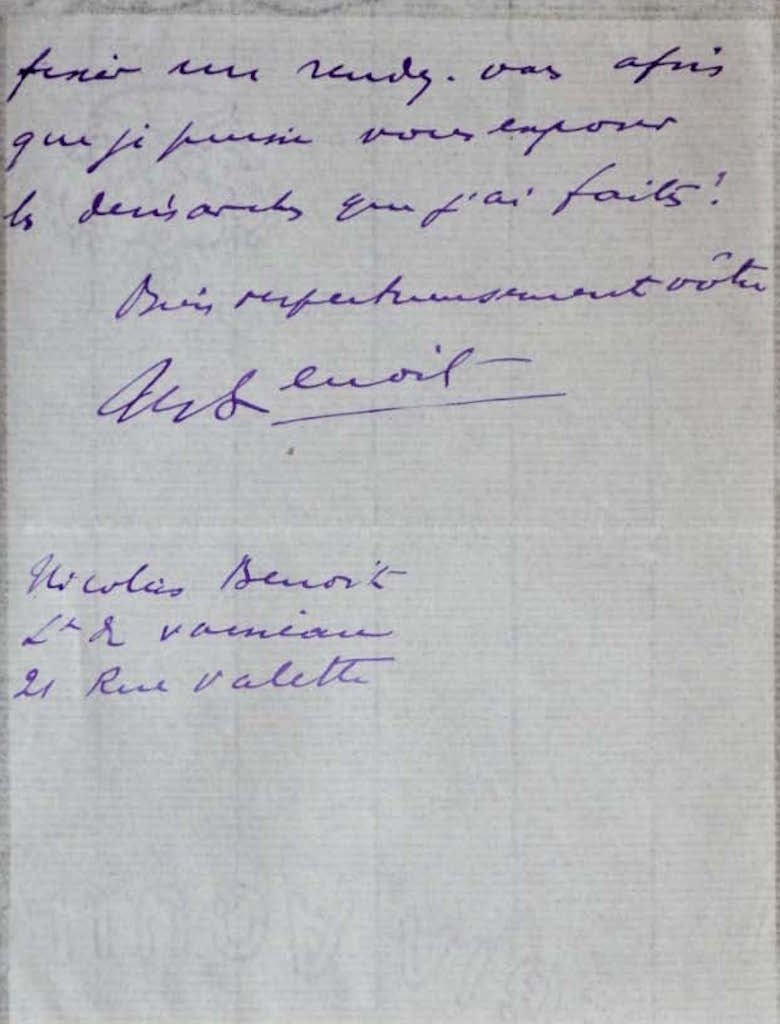 fixer un rendez-vous afin
que je puisse vous exposer
les démarches que j'ai faites!
Bien respectueusement vôtre
Benoit
Nicolas Benoit
Lt de vaisseau
21 Rue Valette